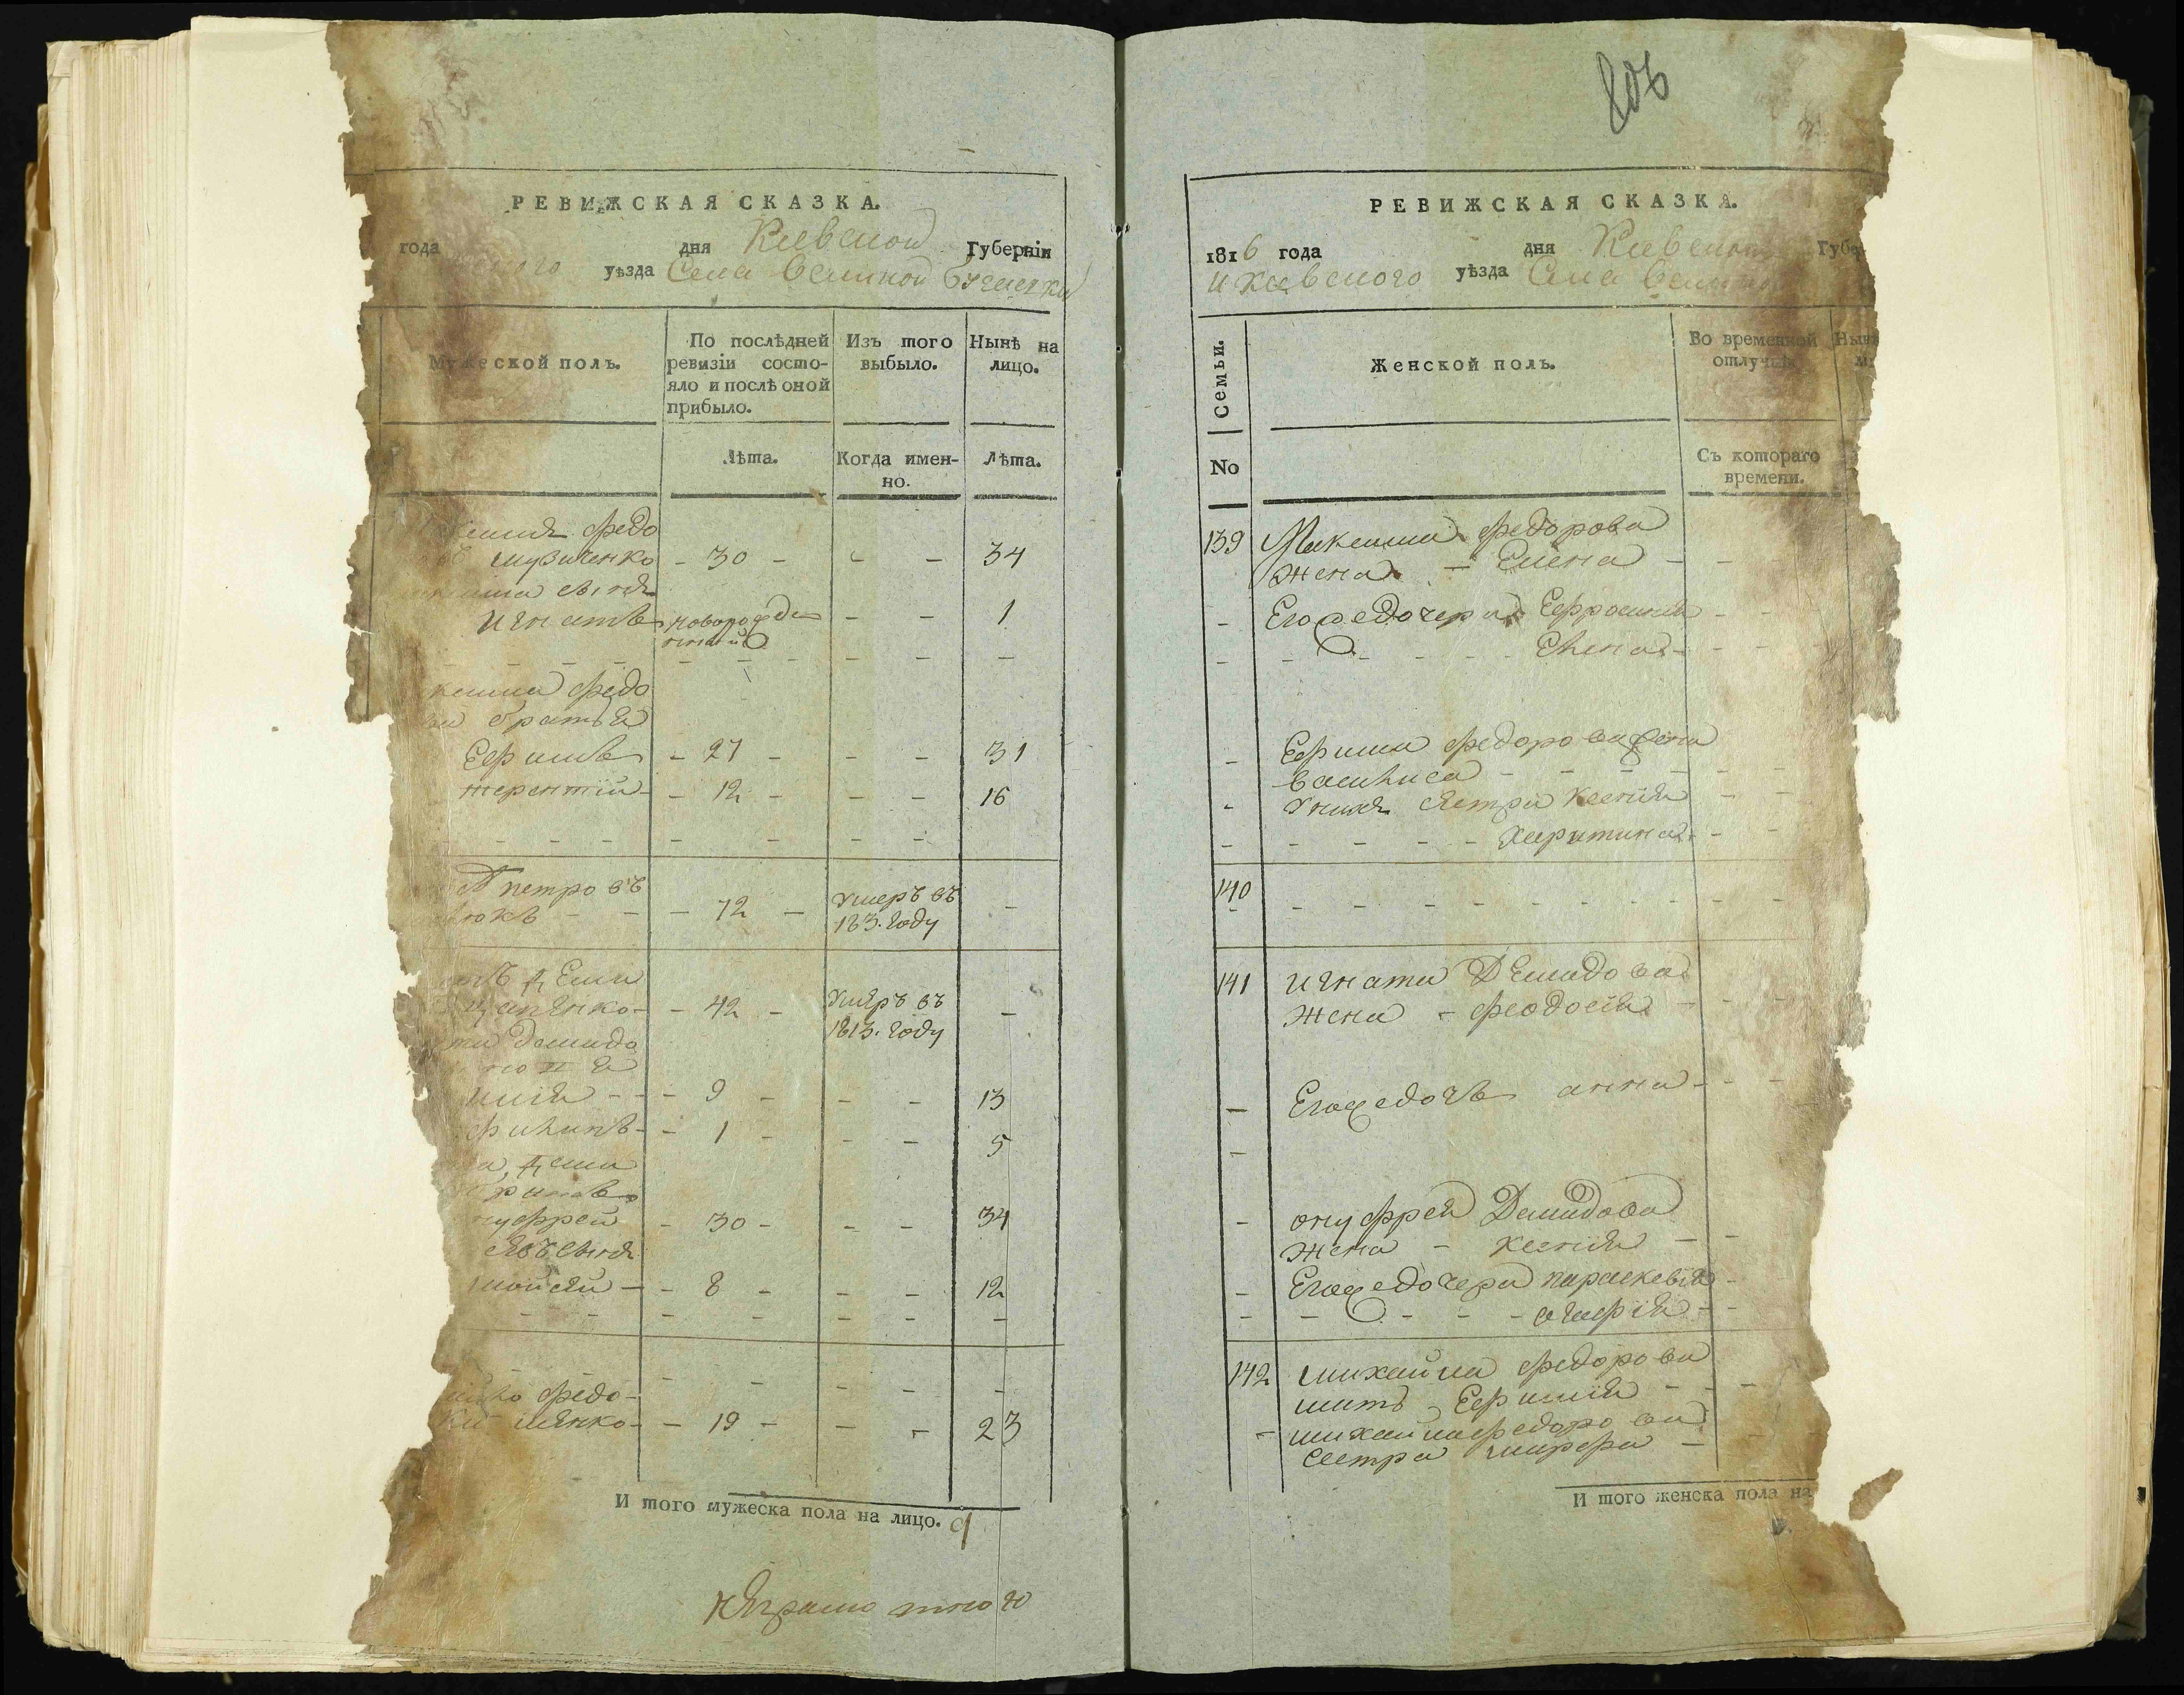 РЕВИЖСКАЯ СКАЗКА.
года дня Киевской Губерніи
уѣзда Села Великой Бугаевки
Мужеской полъ.
По послѣдней ревизіи состо-
яло и послѣ оной
прибыло.
Изъ того
выбыло.
Нынѣ на
лицо.
Лѣта.
Когда имен-
но.
Лѣта.
Федо
Музиченко - 30 - - - 34
сынъ
Игнатъ новорожде
нный - - 1
Федо
братья
Ефимъ - 27 - - - 31
терентій - 12 - - - 16
петровъ
- 72 - умеръ въ
1813. году -
Деми
- 42 - умеръ въ
1813. году -
Демидо
- 9 - - - 13
филипъ - 1 - - - 5
Деми
братъ
нуфрей - 30 - - - 34
сынъ
мойсей - 8 - - - 12
Федо
- 19 - - - 23
И того мужеска пола на лицо. 9
неграмотною
806
РЕВИЖСКАЯ СКАЗКА.
1816 года дня Киевской Губе
и Киевского уѣзда Села Велико
Семьи.
Женской полъ.
Во временной
отлучкѣ.
Нын
No
Съ котораго
времени.
139 Максима Федорова
жена - Елена -
Его же дочери Ефросинія
Елена
Ефима Федорова жена
василиса
У нихъ сестри Ксенія
Харитина
140
141 Игната Демидова
жена - феодосія
Его же дочь анна
онуфрея Демидова
жена - ксенія
Его же дочери параскевія
агафія
142 михайла федорова
мать Ефимія
михайла федорова
сестра марфа
И того женска пола на